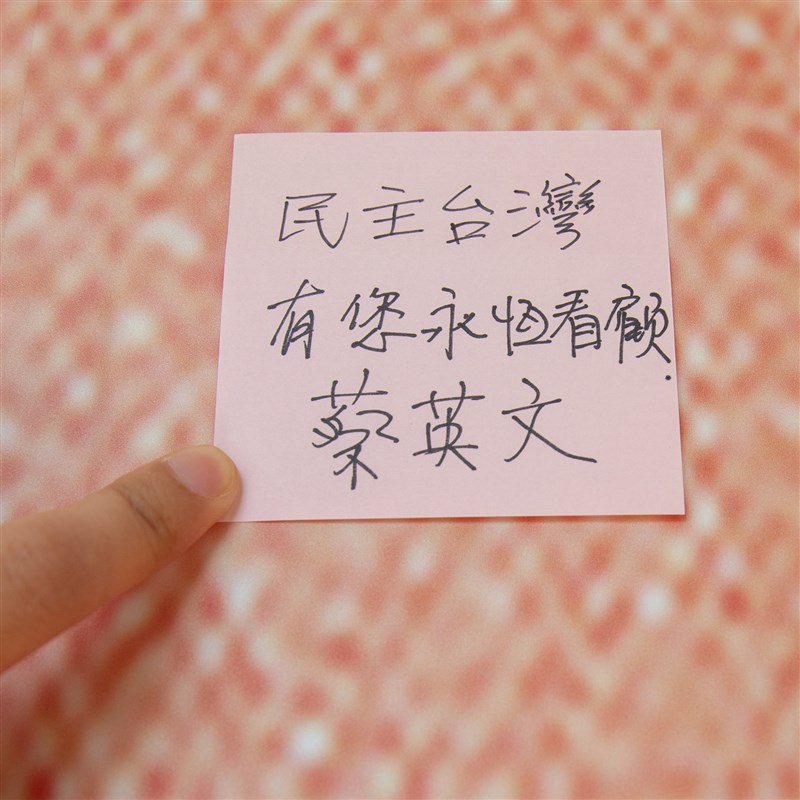 民主台灣
有您永恆看顧.
蔡英文